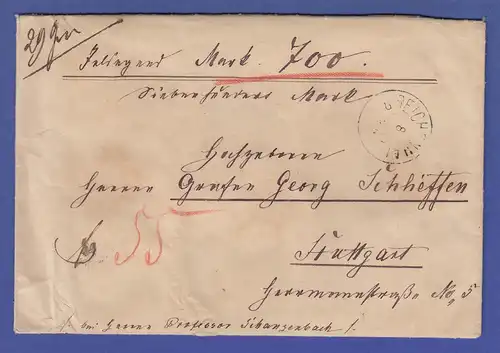 29 Gr
Inliegend Mark 700.
Siebenhundert Mark
REICHENWEI
8
Hochgeboren
Herrn Grafen Georg Schlieffen
No 55
Stuttgart
Herrmannstraße No 5
bei Herrn Professor Schanzenbach /.